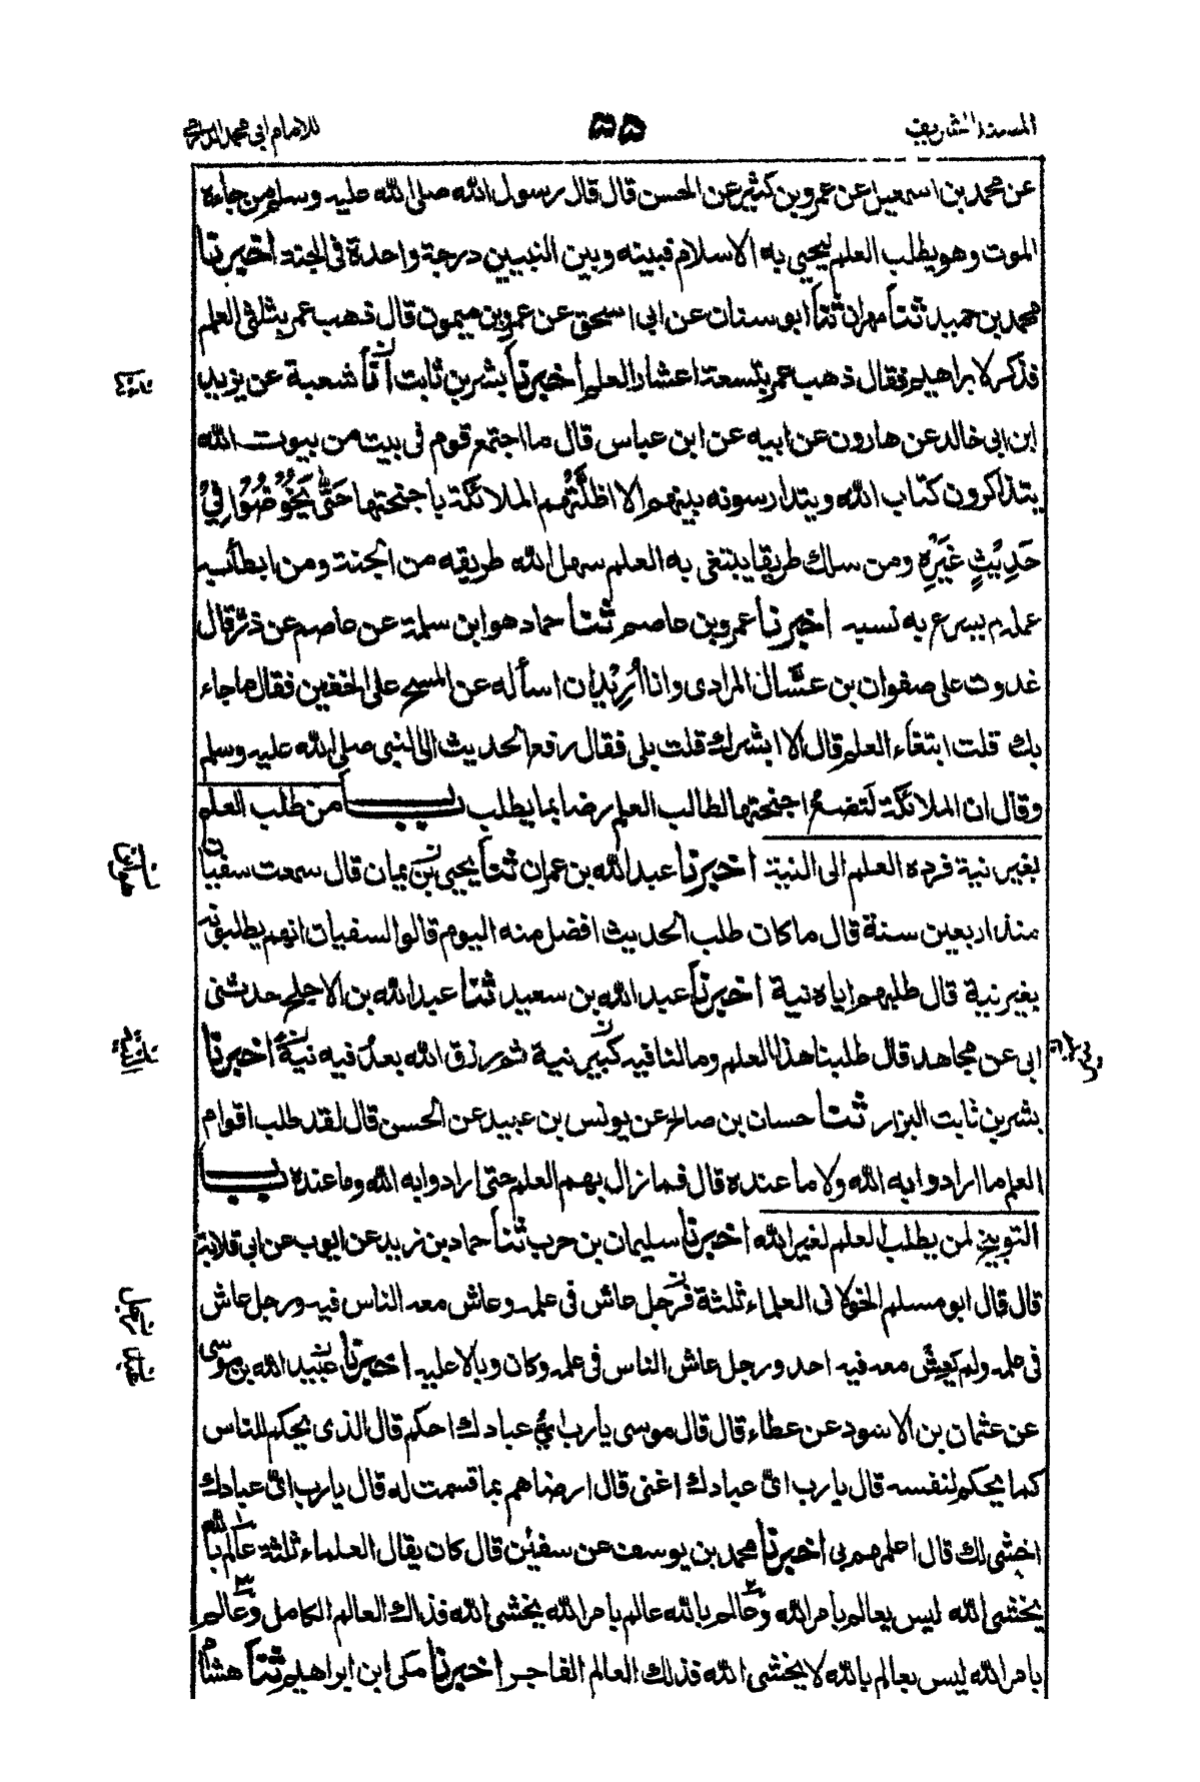 المسند الشريف
٥٥
للامام ابي محمد الدارمي
عن محمد بن اسمعيل عن عمرو بن كثير عن الحسن قال قال رسول الله صلى الله عليه وسلم من جاءه
الموت وهو يطلب العلم ليحيي به الاسلام فبينه وبين النبيين درجة واحدة في الجنة اخبرنا
محمد بن حميد ثنا مهران ثنا ابو سنان عن ابي اسحق عن عمرو بن ميمون قال ذهب عمر بثلثي العلم
فذكر لابراهيم فقال ذهب عمر بتسعة اعشار العلم اخبرنا بشر بن ثابت انا شعبة عن يزيد
ابن ابي خالد عن هارون عن ابيه عن ابن عباس قال ما اجتمع قوم في بيت من بيوت الله
يتذاكرون كتاب الله ويتدارسونه بينهم الا اظلتهم الملائكة باجنحتها حَتّٰى يَخُوْضُوْا فِيْ
حَدِيْثٍ غَيْرِهِ ومن سلك طريقا يبتغي به العلم سهل الله طريقه من الجنة ومن ابطأ به
عمله لم يسرع به نسبه اخبرنا عمرو بن عاصم ثنا حماد هو ابن سلمة عن عاصم عن ذر قال
غدوت على صفوان بن عسّال المرادي وانا اُرِيْدُ ان اسأله عن المسح على الخفين فقال ما جاء
بك قلت ابتغاء العلم قال الا ابشرك قلت بلى فقال رفع الحديث الى النبي صلى الله عليه وسلم
وقال ان الملائكة لَتضعُ اجنحتها لطالب العلم رضا بما يطلب باب من طلب العلم
بغير نية فرده العلم الى النية اخبرنا عبد الله بن عمران ثنا يحيى بن يمان قال سمعت سفيان
منذ اربعين سنة قال ما كان طلب الحديث افضل منه اليوم قالوا لسفيان انهم يطلبونه
بغير نية قال طلبهم اياه نية اخبرنا عبد الله بن سعيد ثنا عبد الله بن الاجلح حدثني
ابي عن مجاهد قال طلبنا هذا العلم وما لنا فيه كبير نية ثم رزق الله بعدُ فيه نيةً اخبرنا
بشر بن ثابت البزار ثنا حسان بن صالح عن يونس بن عبيد عن الحسن قال لقد طلب اقوام
العلم ما ارادوا به الله ولا ما عنده قال فما زال بهم العلم حتى ارادوا به الله وما عنده باب
التوبيخ لمن يطلب العلم لغير الله اخبرنا سليمان بن حرب ثنا حماد بن زيد عن ايوب عن ابي قلابة
قال قال ابو مسلم الخولاني العلماء ثلثة فرجل عاش في علمه وعاش معه الناس فيه ورجل عاش
في علمه ولم يعِشْ معه فيه احد ورجل عاش الناس في علمه وكان وبالا عليه اخبرنا عبيد الله بن موسى
عن عثمان بن الاسود عن عطاء قال قال موسى يا رب اي عبادك احكم قال الذي يحكم للناس
كما يحكم لنفسه قال يا رب اي عبادك اغنى قال ارضاهم بما قسمت له قال يا رب اي عبادك
اخشى لك قال اعلمهم بي اخبرنا محمد بن يوسف عن سفين قال كان يقال العلماء ثلثة عالم بالله
يخشى الله ليس بعالم بامر الله وعالم بالله عالم بامر الله يخشى الله فذاك العالم الكامل وعالم
بامر الله ليس بعالم بالله لا يخشى الله فذلك العالم الفاجر اخبرنا مكي ابن ابراهيم ثنا هشام